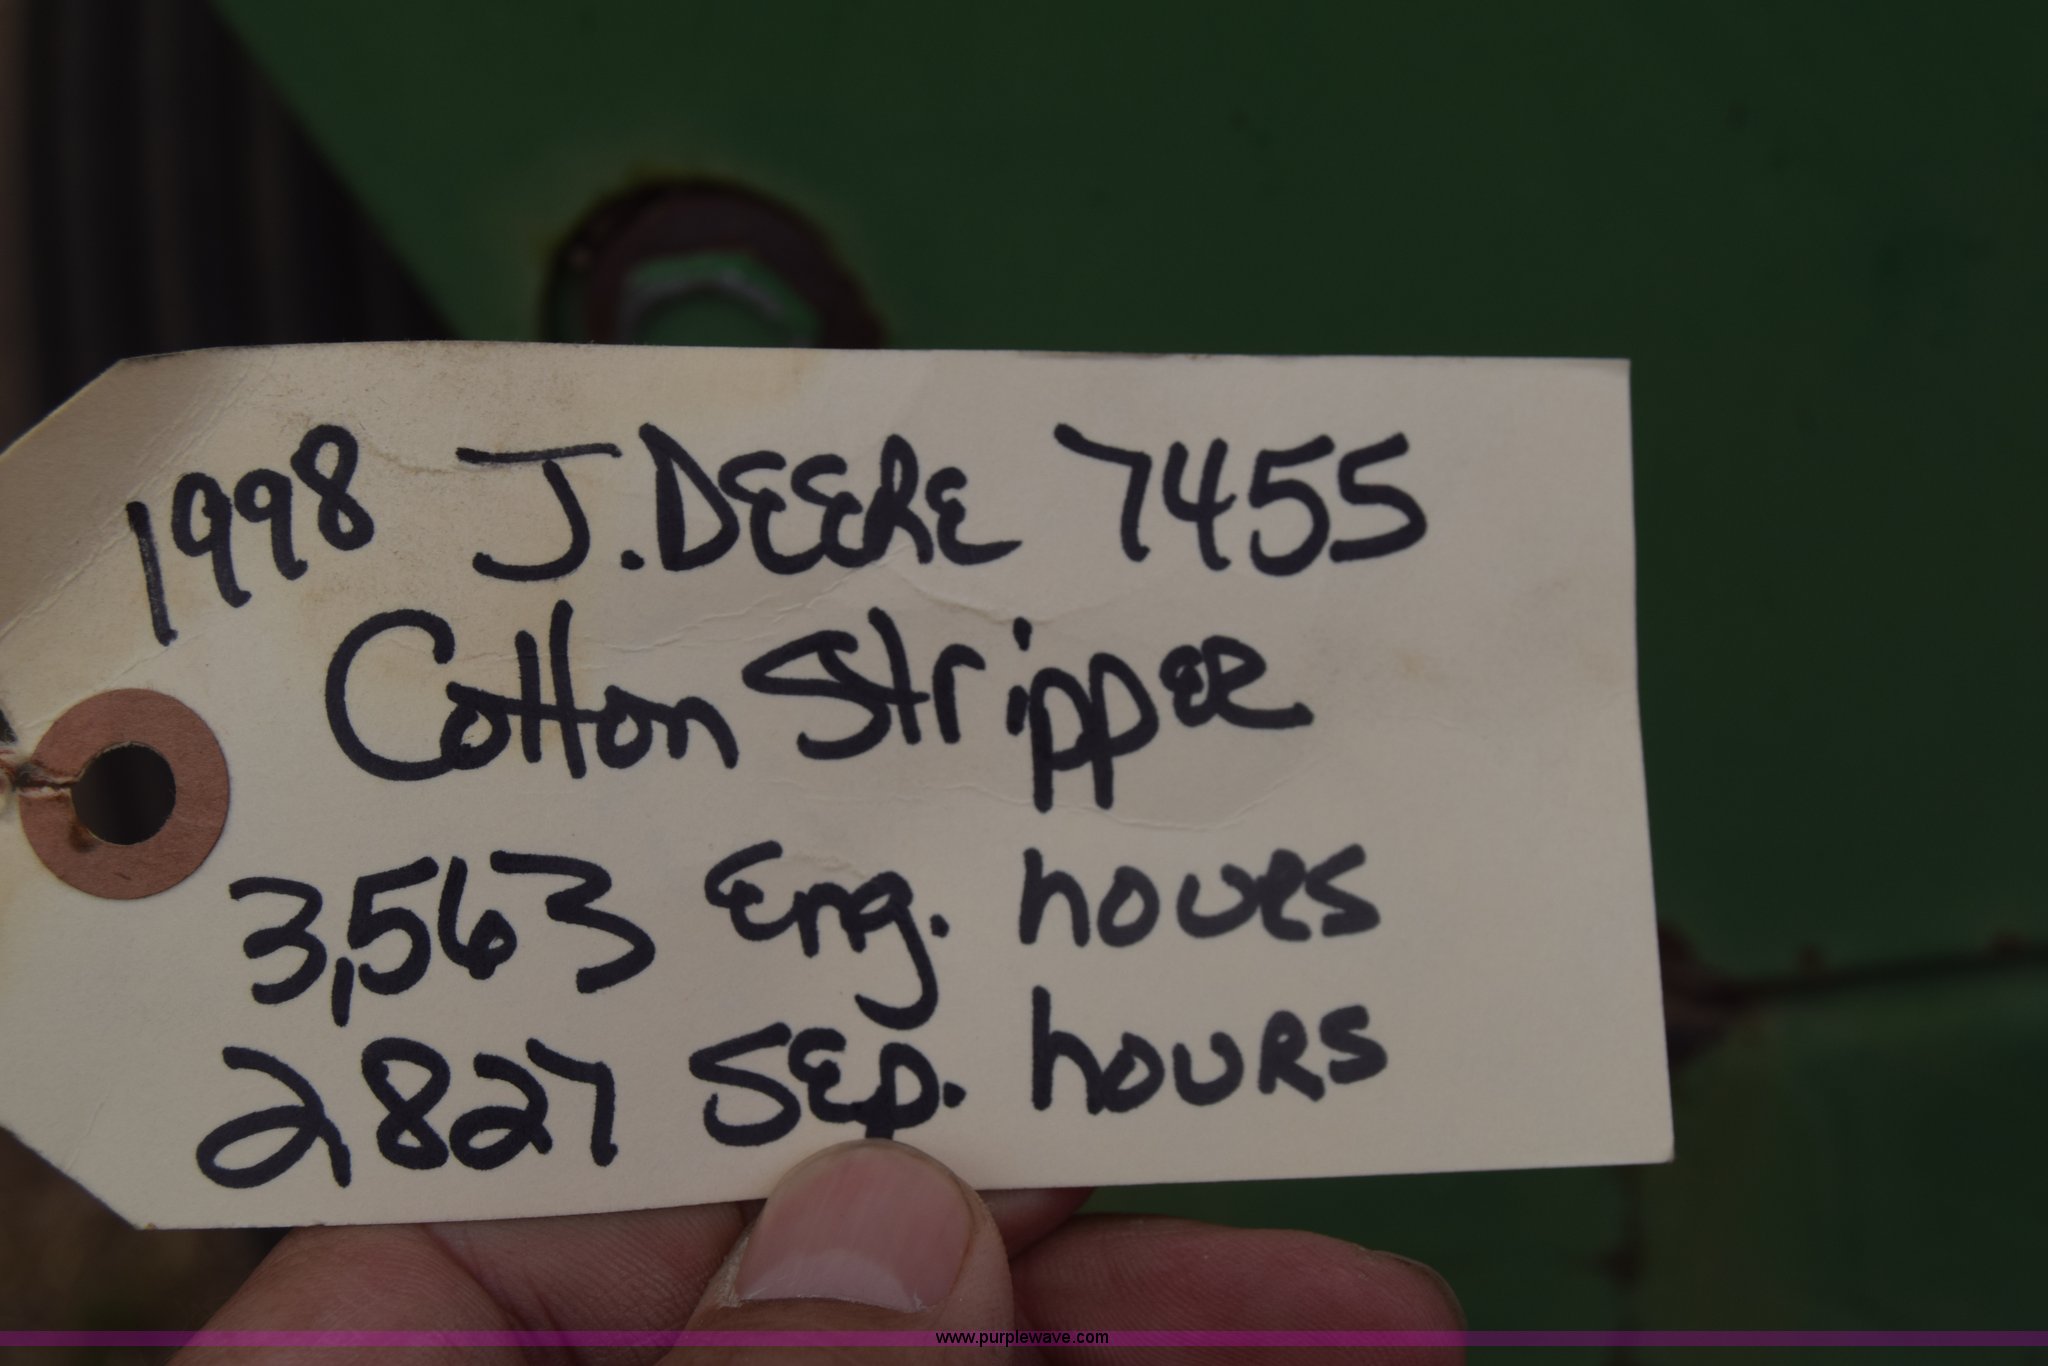 1998 J.DEERE 7455
Cotton Stripper
3,563 Eng. hours
2827 Sep. hours
www.purplewave.com